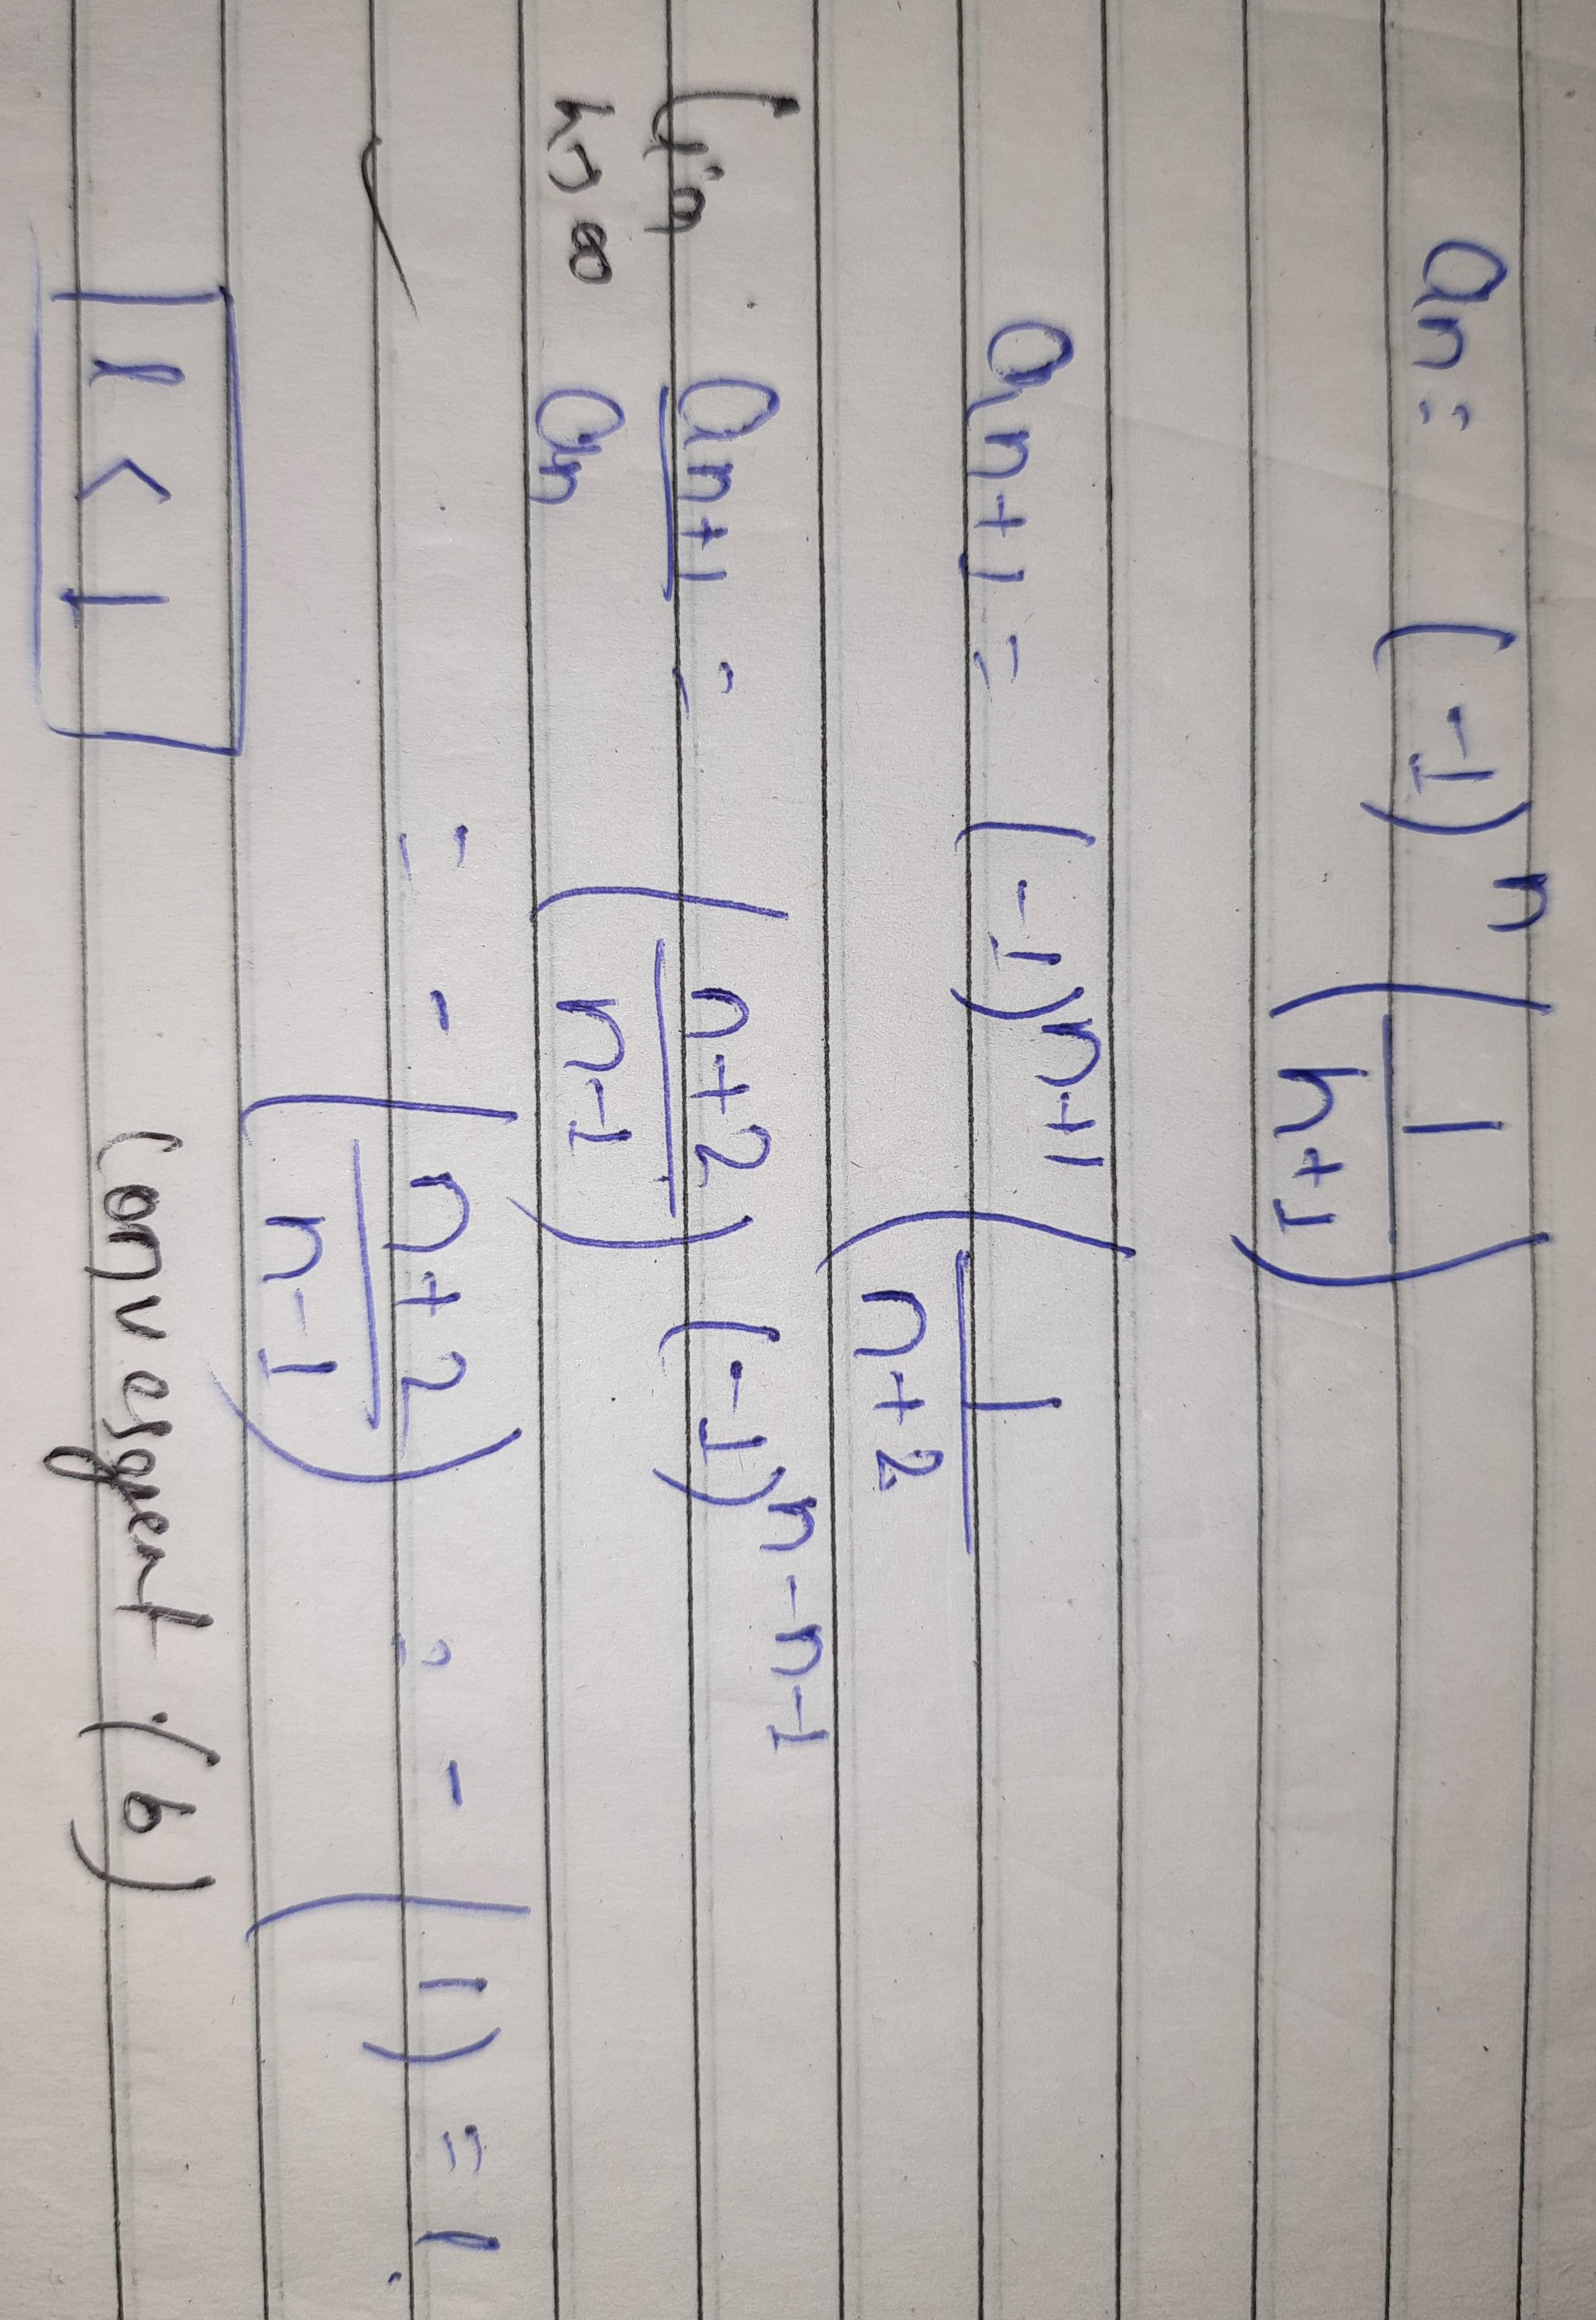 an = (-1)^n (1/(n+1))
an+1 = (-1)^(n+1) (1/(n+2))
lim n→∞ an+1/an = ((n+2)/(n-1)) (-1)^(n-n-1)
= - ((n+2)/(n-1)) = - (1) = l
l < 1 convergent. (b)